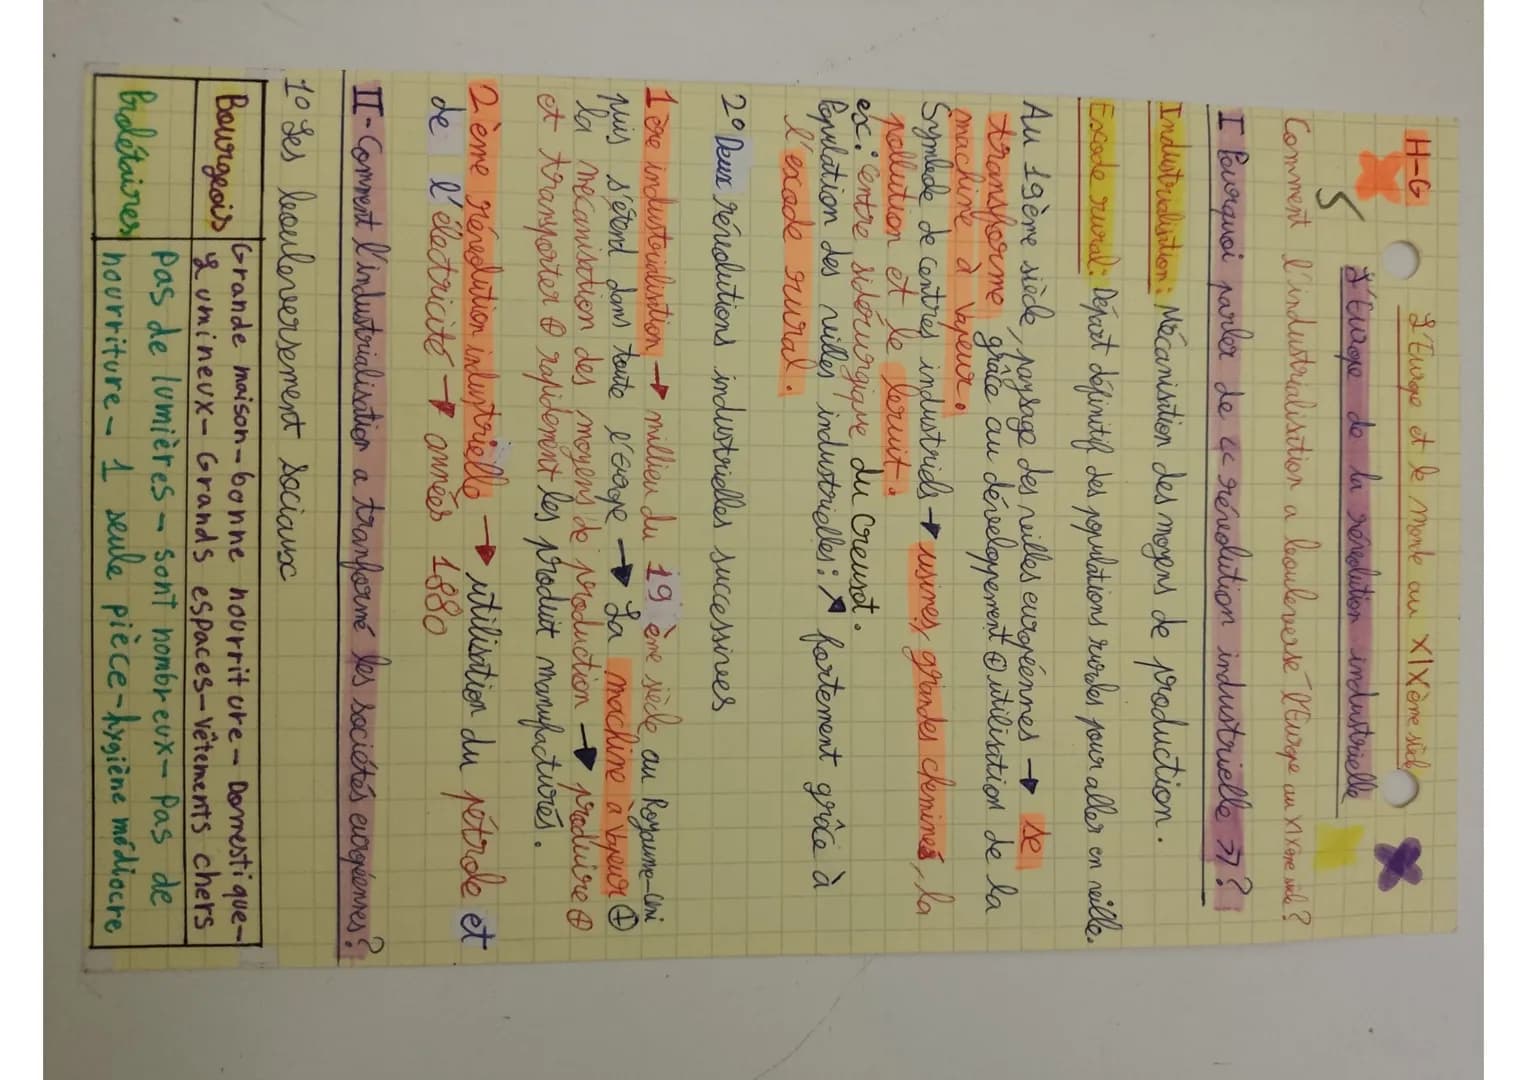 H-G
L'Europe et le monde au XIXème siècl
5
L'Europe de la révolution industrielle
Comment l'industrialisation a bouleversé l'Europe au XIXème siècle?
I Pourquoi parler de << révolution industrielle >>?
Industrialisation: Mécanisation des moyens de production.
Exode rural: Départ définitif des populations rurales pour aller en ville.
Au 19ème siècle, paysage des villes européennes → se
transforme grâce au développement ⊕ utilisation de la
machine à vapeur.
Symbole de centres industriels → usines, grandes cheminés, la
pollution et le bruit.
ex: Centre sidérurgique du Creusot.
Population des villes industrielles: ↗ fortement grâce à
l'exode rural.
2° Deux révolutions industrielles successives
1 ère industrialisation → millieu du 19 ème siècle, au Royaume-Uni
puis s'étend dans toute l'Europe → La machine à vapeur ⊕
la mécanisation des moyens de production → produire ⊕
et transporter ⊕ rapidement les produit manufacturés.
2 ème révolution industrielle → utilisation du pétrole et
de l'électricité → années 1880
II - Comment l'industrialisation a tranformé les sociétés européennes?
1° Les bouleversement sociaux
Bourgeois Grande maison - bonne nourriture - Domestique -
Lumineux - Grands espaces - Vêtements chers
Prolétaires pas de lumières - sont nombreux - Pas de
nourriture - 1 seule pièce - hygiène médiocre